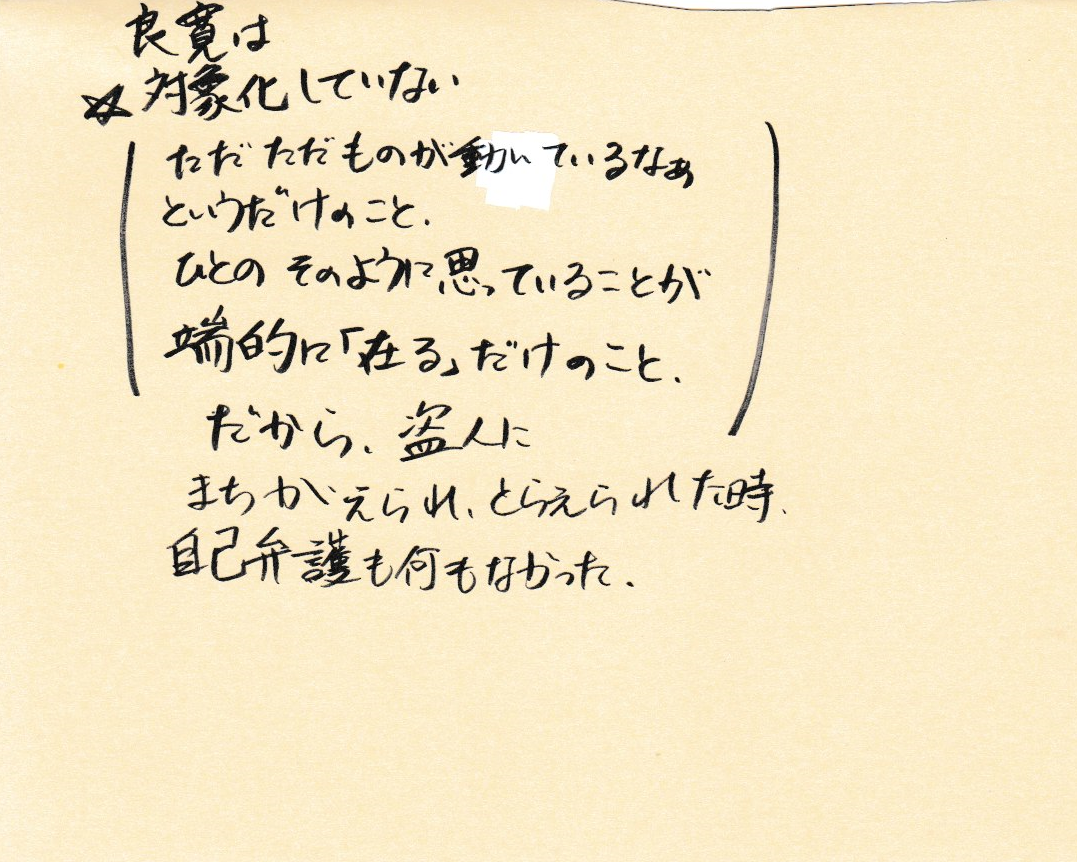 良寛は
☆対象化していない
(ただただものが動いているなぁ
というだけのこと.
ひとの そのように思っていることが
端的に「在る」だけのこと.)
だから、盗人に
まちがえられ、とらえられた時、
自己弁護も何もなかった.